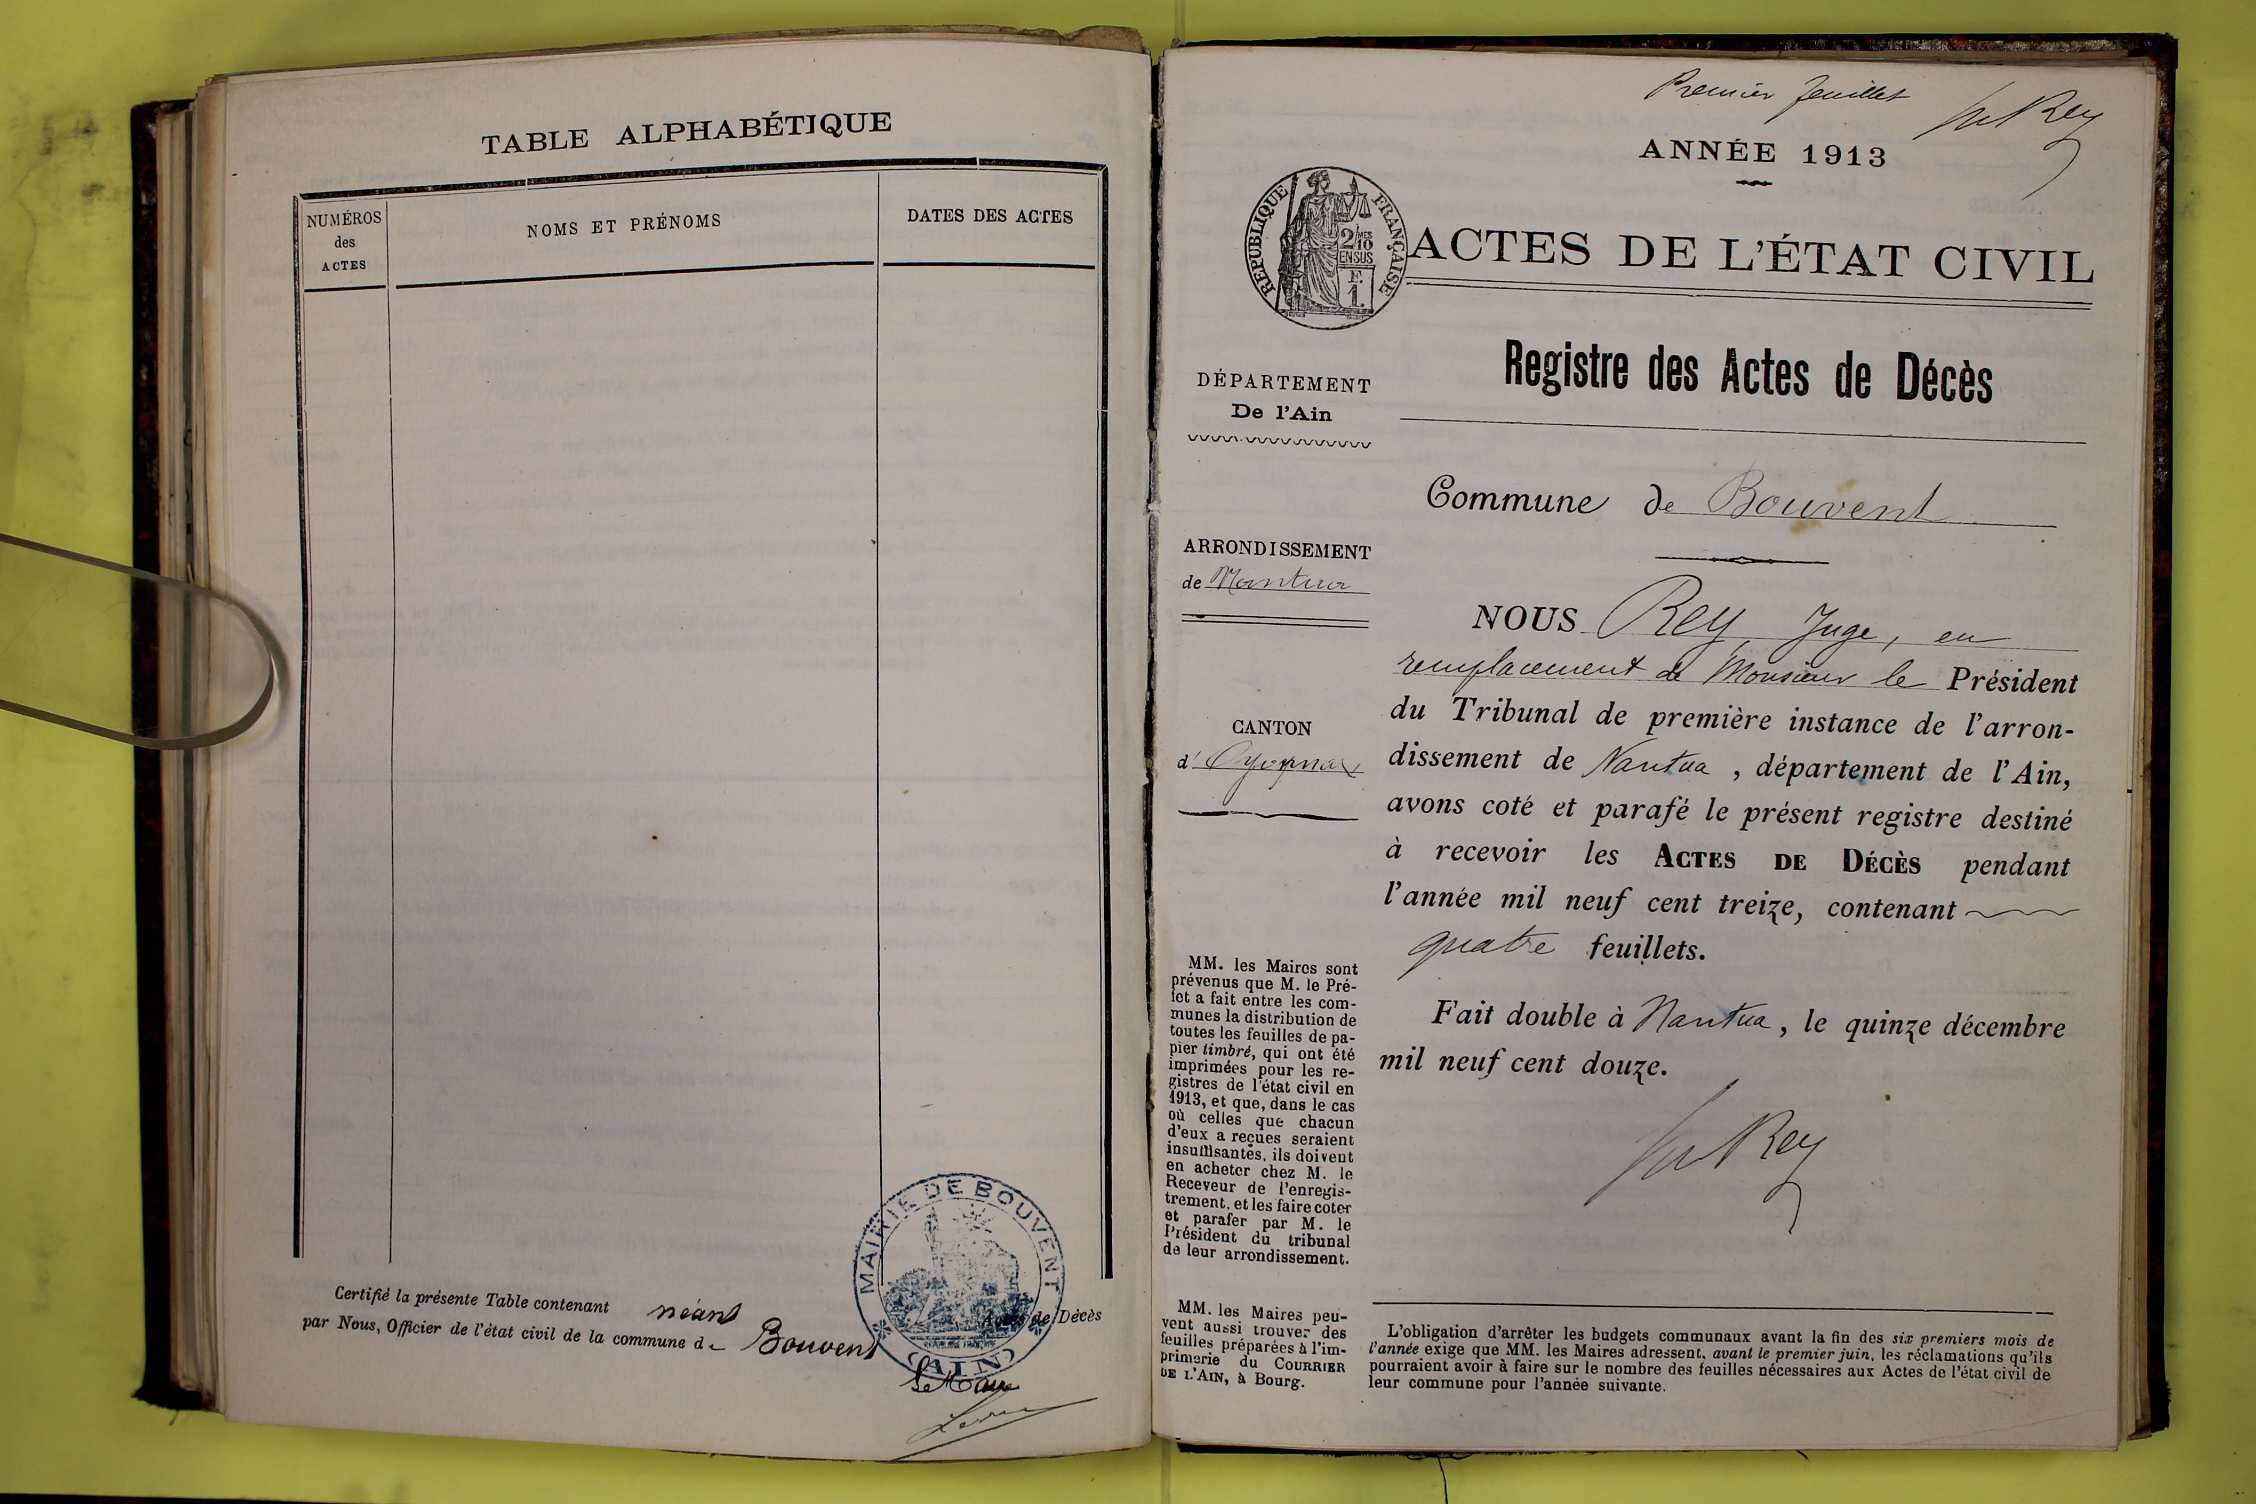 TABLE ALPHABÉTIQUE
NUMÉROS
des
ACTES
NOMS ET PRÉNOMS
DATES DES ACTES
Certifié la présente Table contenant néant Actes de Décès
par Nous, Officier de l'état civil de la commune de Bouvent
MAIRIE DE BOUVENT
(AIN)
Le Maire
Premier feuillet
Rey
ANNÉE 1913
RÉPUBLIQUE FRANÇAISE
2/10 MES
EN SUS
F.
1.
ACTES DE L'ÉTAT CIVIL
Registre des Actes de Décès
DÉPARTEMENT
De l'Ain
Commune de Bouvent
ARRONDISSEMENT
de Nantua
CANTON
d' Oyonnax
NOUS Rey, Juge, en
remplacement de Monsieur le Président
du Tribunal de première instance de l'arron-
dissement de Nantua, département de l'Ain,
avons coté et parafé le présent registre destiné
à recevoir les ACTES DE DÉCÈS pendant
l'année mil neuf cent treize, contenant
quatre feuillets.
Fait double à Nantua, le quinze décembre
mil neuf cent douze.
Rey
MM. les Maires sont
prévenus que M. le Pré-
fet a fait entre les com-
munes la distribution de
toutes les feuilles de pa-
pier timbré, qui ont été
imprimées pour les re-
gistres de l'état civil en
1913, et que, dans le cas
où celles que chacun
d'eux a reçues seraient
insuffisantes, ils doivent
en acheter chez M. le
Receveur de l'enregis-
trement, et les faire coter
et parafer par M. le
Président du tribunal
de leur arrondissement.
MM. les Maires peu-
vent aussi trouver des
feuilles préparées à l'im-
primerie du COURRIER
DE L'AIN, à Bourg.
L'obligation d'arrêter les budgets communaux avant la fin des six premiers mois de
l'année exige que MM. les Maires adressent, avant le premier juin, les réclamations qu'ils
pourraient avoir à faire sur le nombre des feuilles nécessaires aux Actes de l'état civil de
leur commune pour l'année suivante.